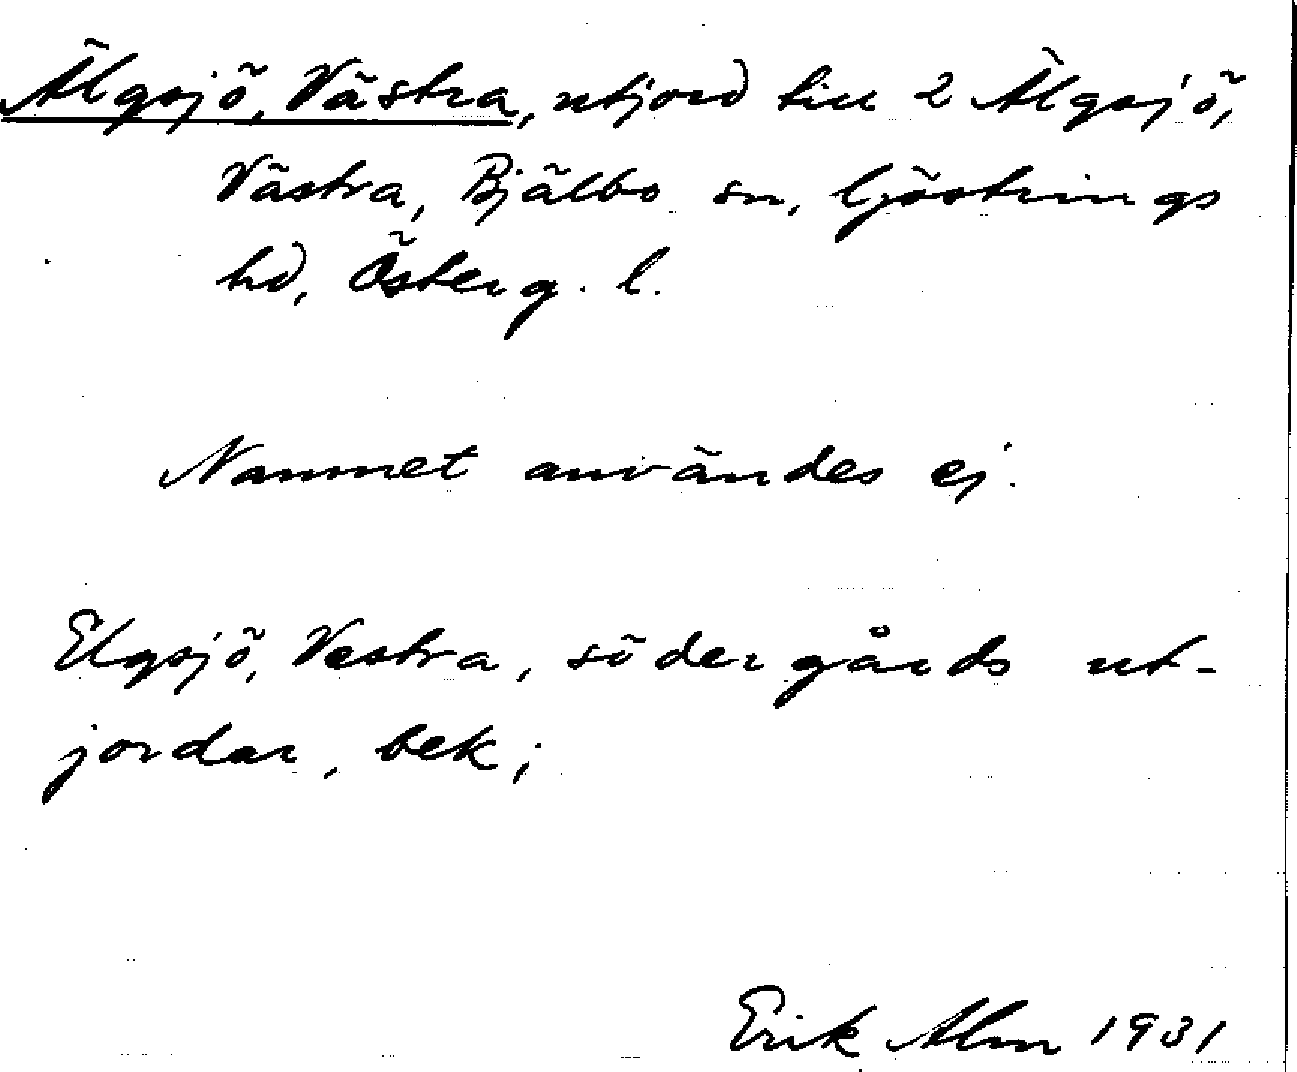 Älgsjö, Västra, utjord till 2 Älgsjö,
Västra, Bjälbo sn, Gjöstrings
hd, Österg. l.
Namnet användes ej.
Elgsjö, Vestra, södergårds ut-
jordar, bek;
Erik Alm 1931